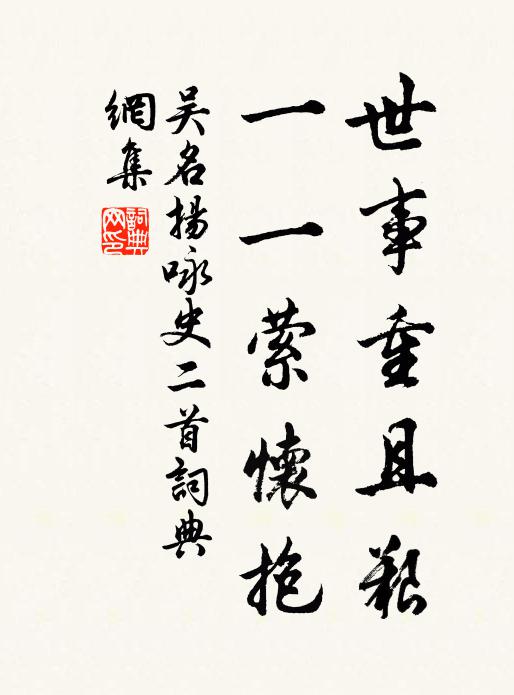 世事重且艱
一一縈懷抱
吴名揚咏史二首詞典
網集
詞典网印